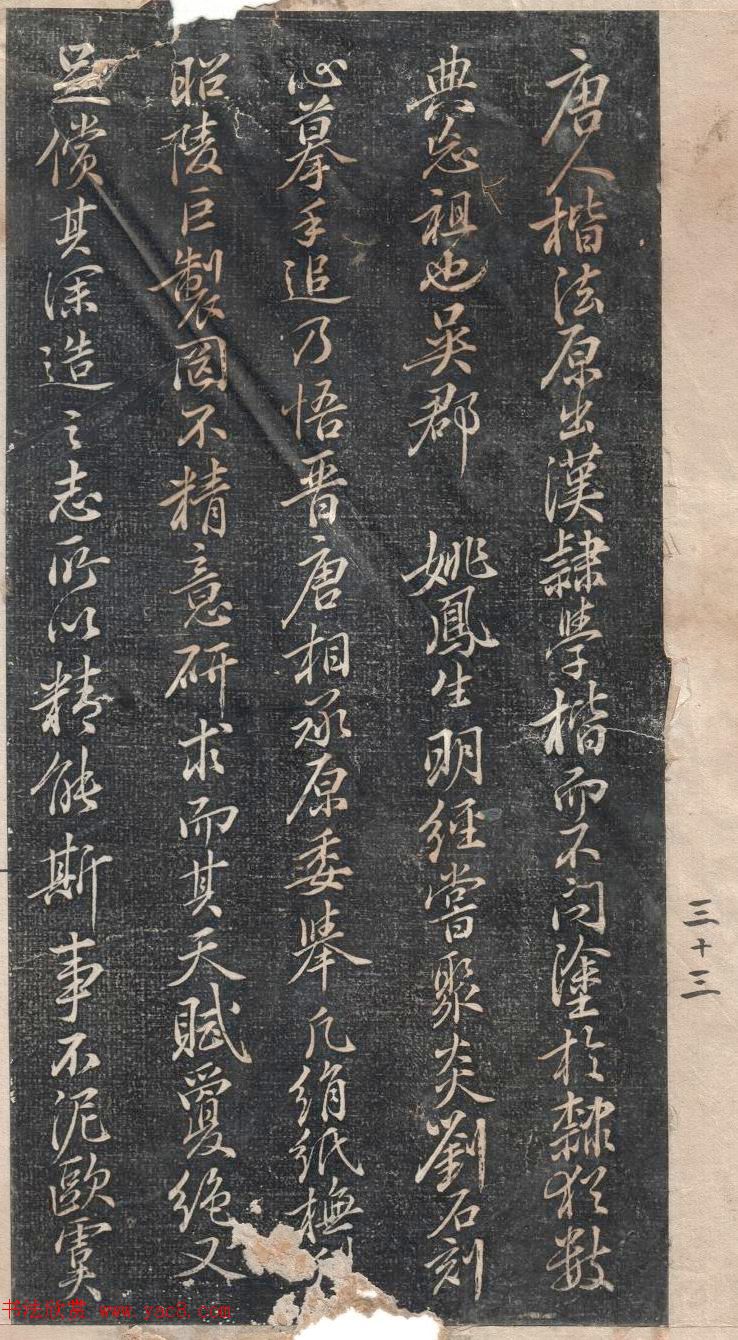 唐人楷法原出漢隸學楷而不問塗於隸猶數
典忘祖也吳郡 姚鳳生明經嘗聚炎劉石刻
心摹手追乃悟晉唐相承原委舉凡絹紙橅
昭陵巨製罔不精意研求而其天賦敻絶又
足償其深造之志所以精能斯事不泥歐虞
三十三
书法欣赏 www.yac8.com